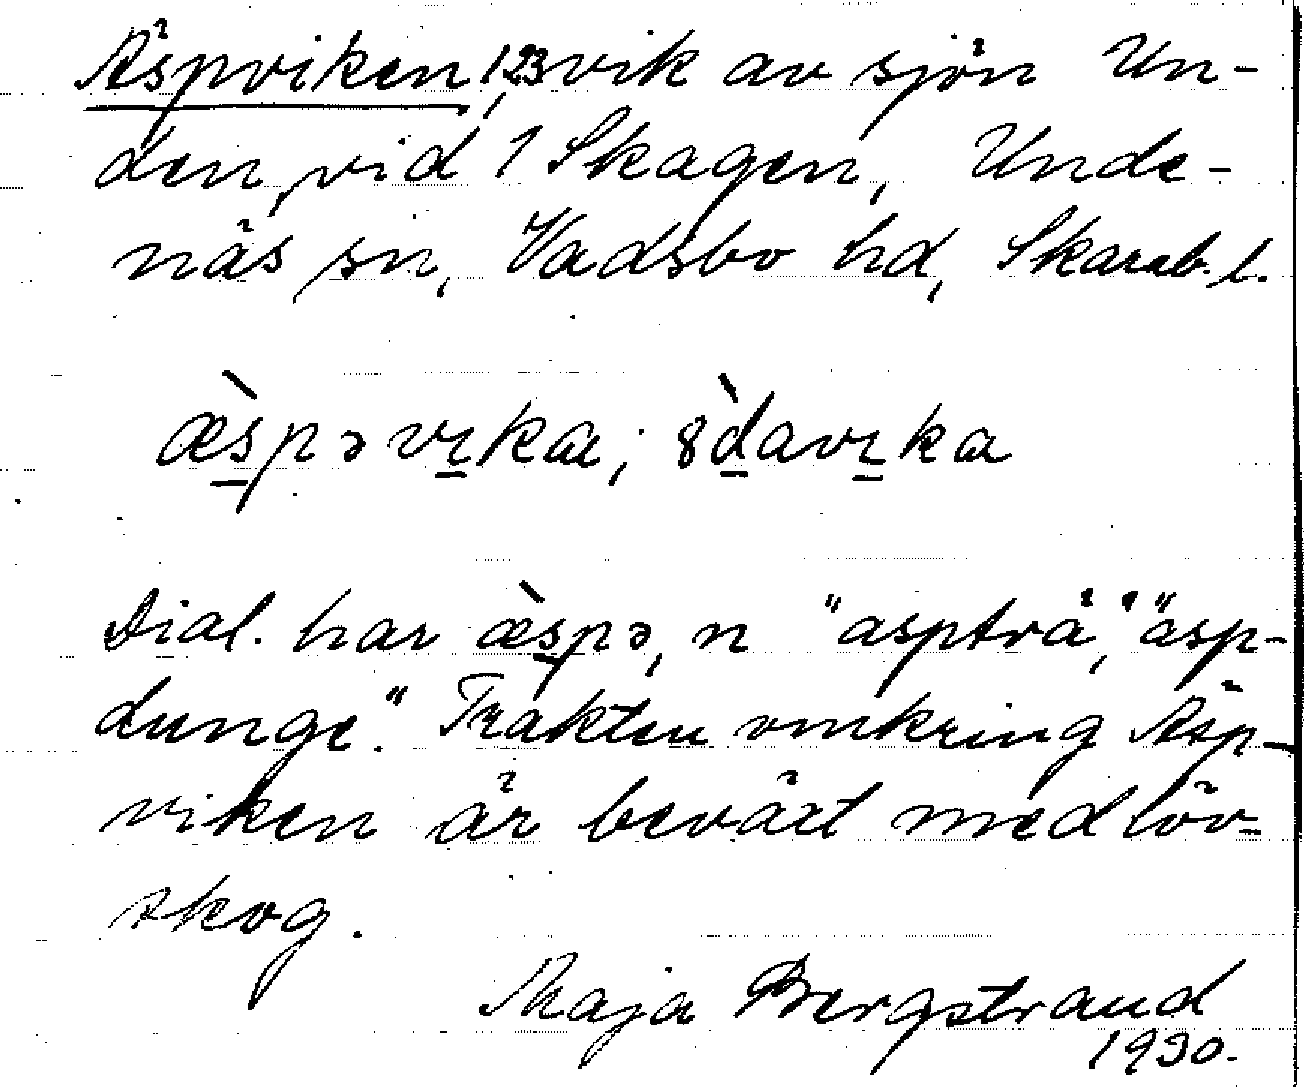 Äspviken, 123, vik av sjön Un-
den, vid 1 Skagen, Unde-
näs sn, Vadsbo hd, Skarab. l.
æ̀spəvɪka; 8davɪka
Dial. har æ̀spə, n "aspträ", "äsp-
dunge". Trakten omkring Äsp-
viken är beväxt med löv-
skog.
Maja Bergstrand
1930.